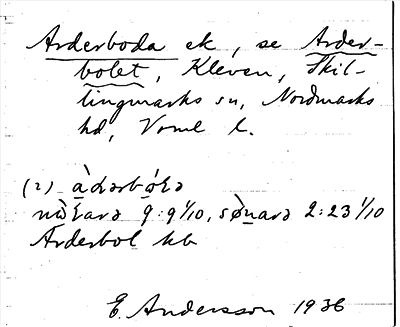 Arderboda ek, se Arder-
bolet, Kleven, Skil-
lingmarks sn, Nordmarks
hd, Vrml l.
(2) àdɘrbo̗ɫɘ
nò̱ɫarɘ 9:9 1/10, sø̀narɘ 2:23 1/10
Arderbol hb
E. Andersson 1936